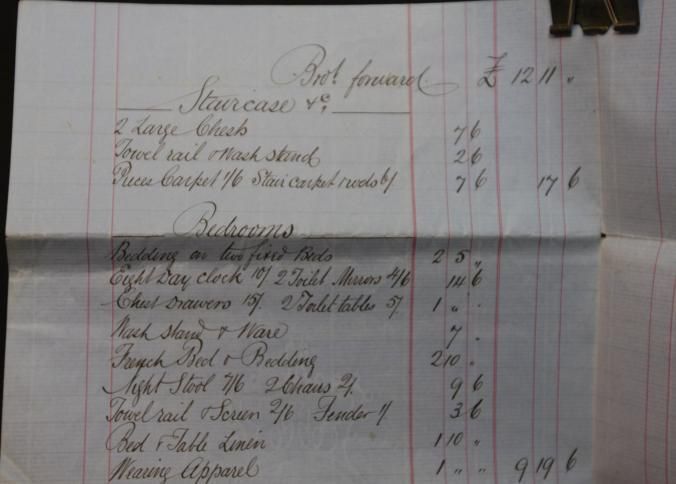 Brot. forward £ 12 11 "
Staircase &c.
2 Large Chests 7 6
Towel rail & Wash stand 2 6
Pieces Carpet 1/6 Stair carpet & rods 6/ 7 6 17 6
Bedrooms
Bedding on two fixed Beds 2 5 "
Eight Day clock 10/ 2 Toilet Mirrors 4/6 14 6
Chest Drawers 15/. 2 Toilet tables 5/. 1 " "
Wash stand & Ware 7 "
French Bed & Bedding 2 10 "
Night Stool 7/6 2 Chairs 2/. 9 6
Towel rail & Screen 2/6 Fender 1/ 3 6
Bed & Table Linen 1 10 "
Wearing Apparel 1 " " 9 19 6